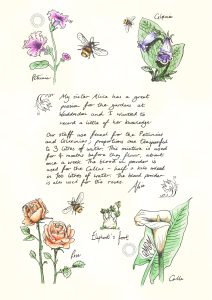 Petunia
Colquinia
My sister Alice has a great
passion for the gardens at
Waddesdon and I wanted to
record a little of her knowledge
Our stuffs are found for the Petunias
and Colquinias; proportions are teaspoonful
to 3 litres of water. This mixture is used
for 4 months before they flower, about
once a week. The blood in powder is
used for the Callas - half a kilo mixed
in 900 litres of water. The blood powder
is also used for the roses.
Alice
Elephant's foot
Rose
Calla